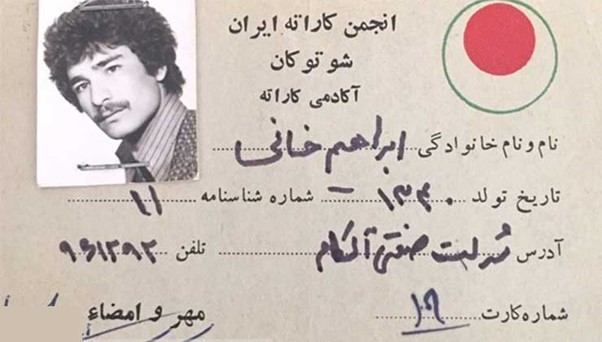 انجمن کاراته ایران
شوتوکان
آکادمی کاراته
نام و نام خانوادگی ابراهیم خانی
تاریخ تولد ۱۳۴۰ شماره شناسنامه ۱۱
آدرس صنعتی تلفن
شماره کارت ۱۹
مهر و امضاء